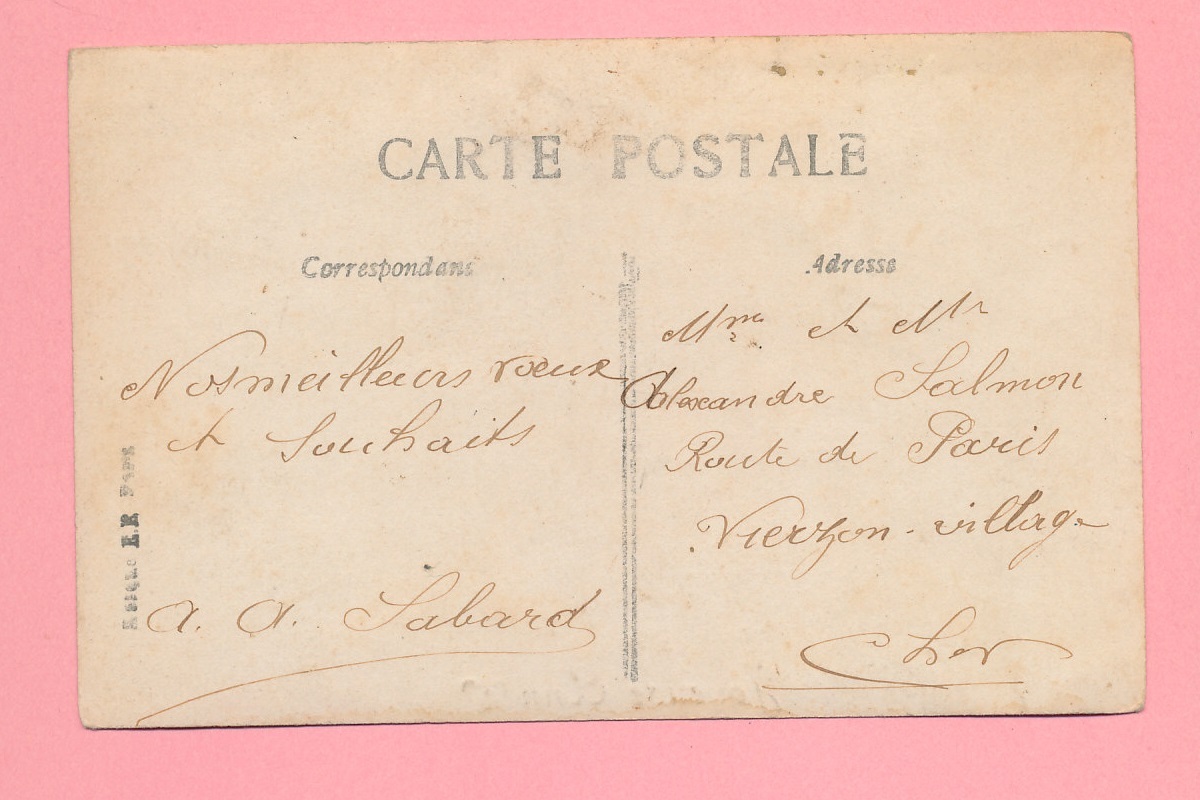 CARTE POSTALE
Correspondanc
Adresse
Nos meilleurs vœux
et Souhaits
A. A. Sabard
Mme et Mr
Alexandre Salmon
Route de Paris
Vierzon-village
Cher